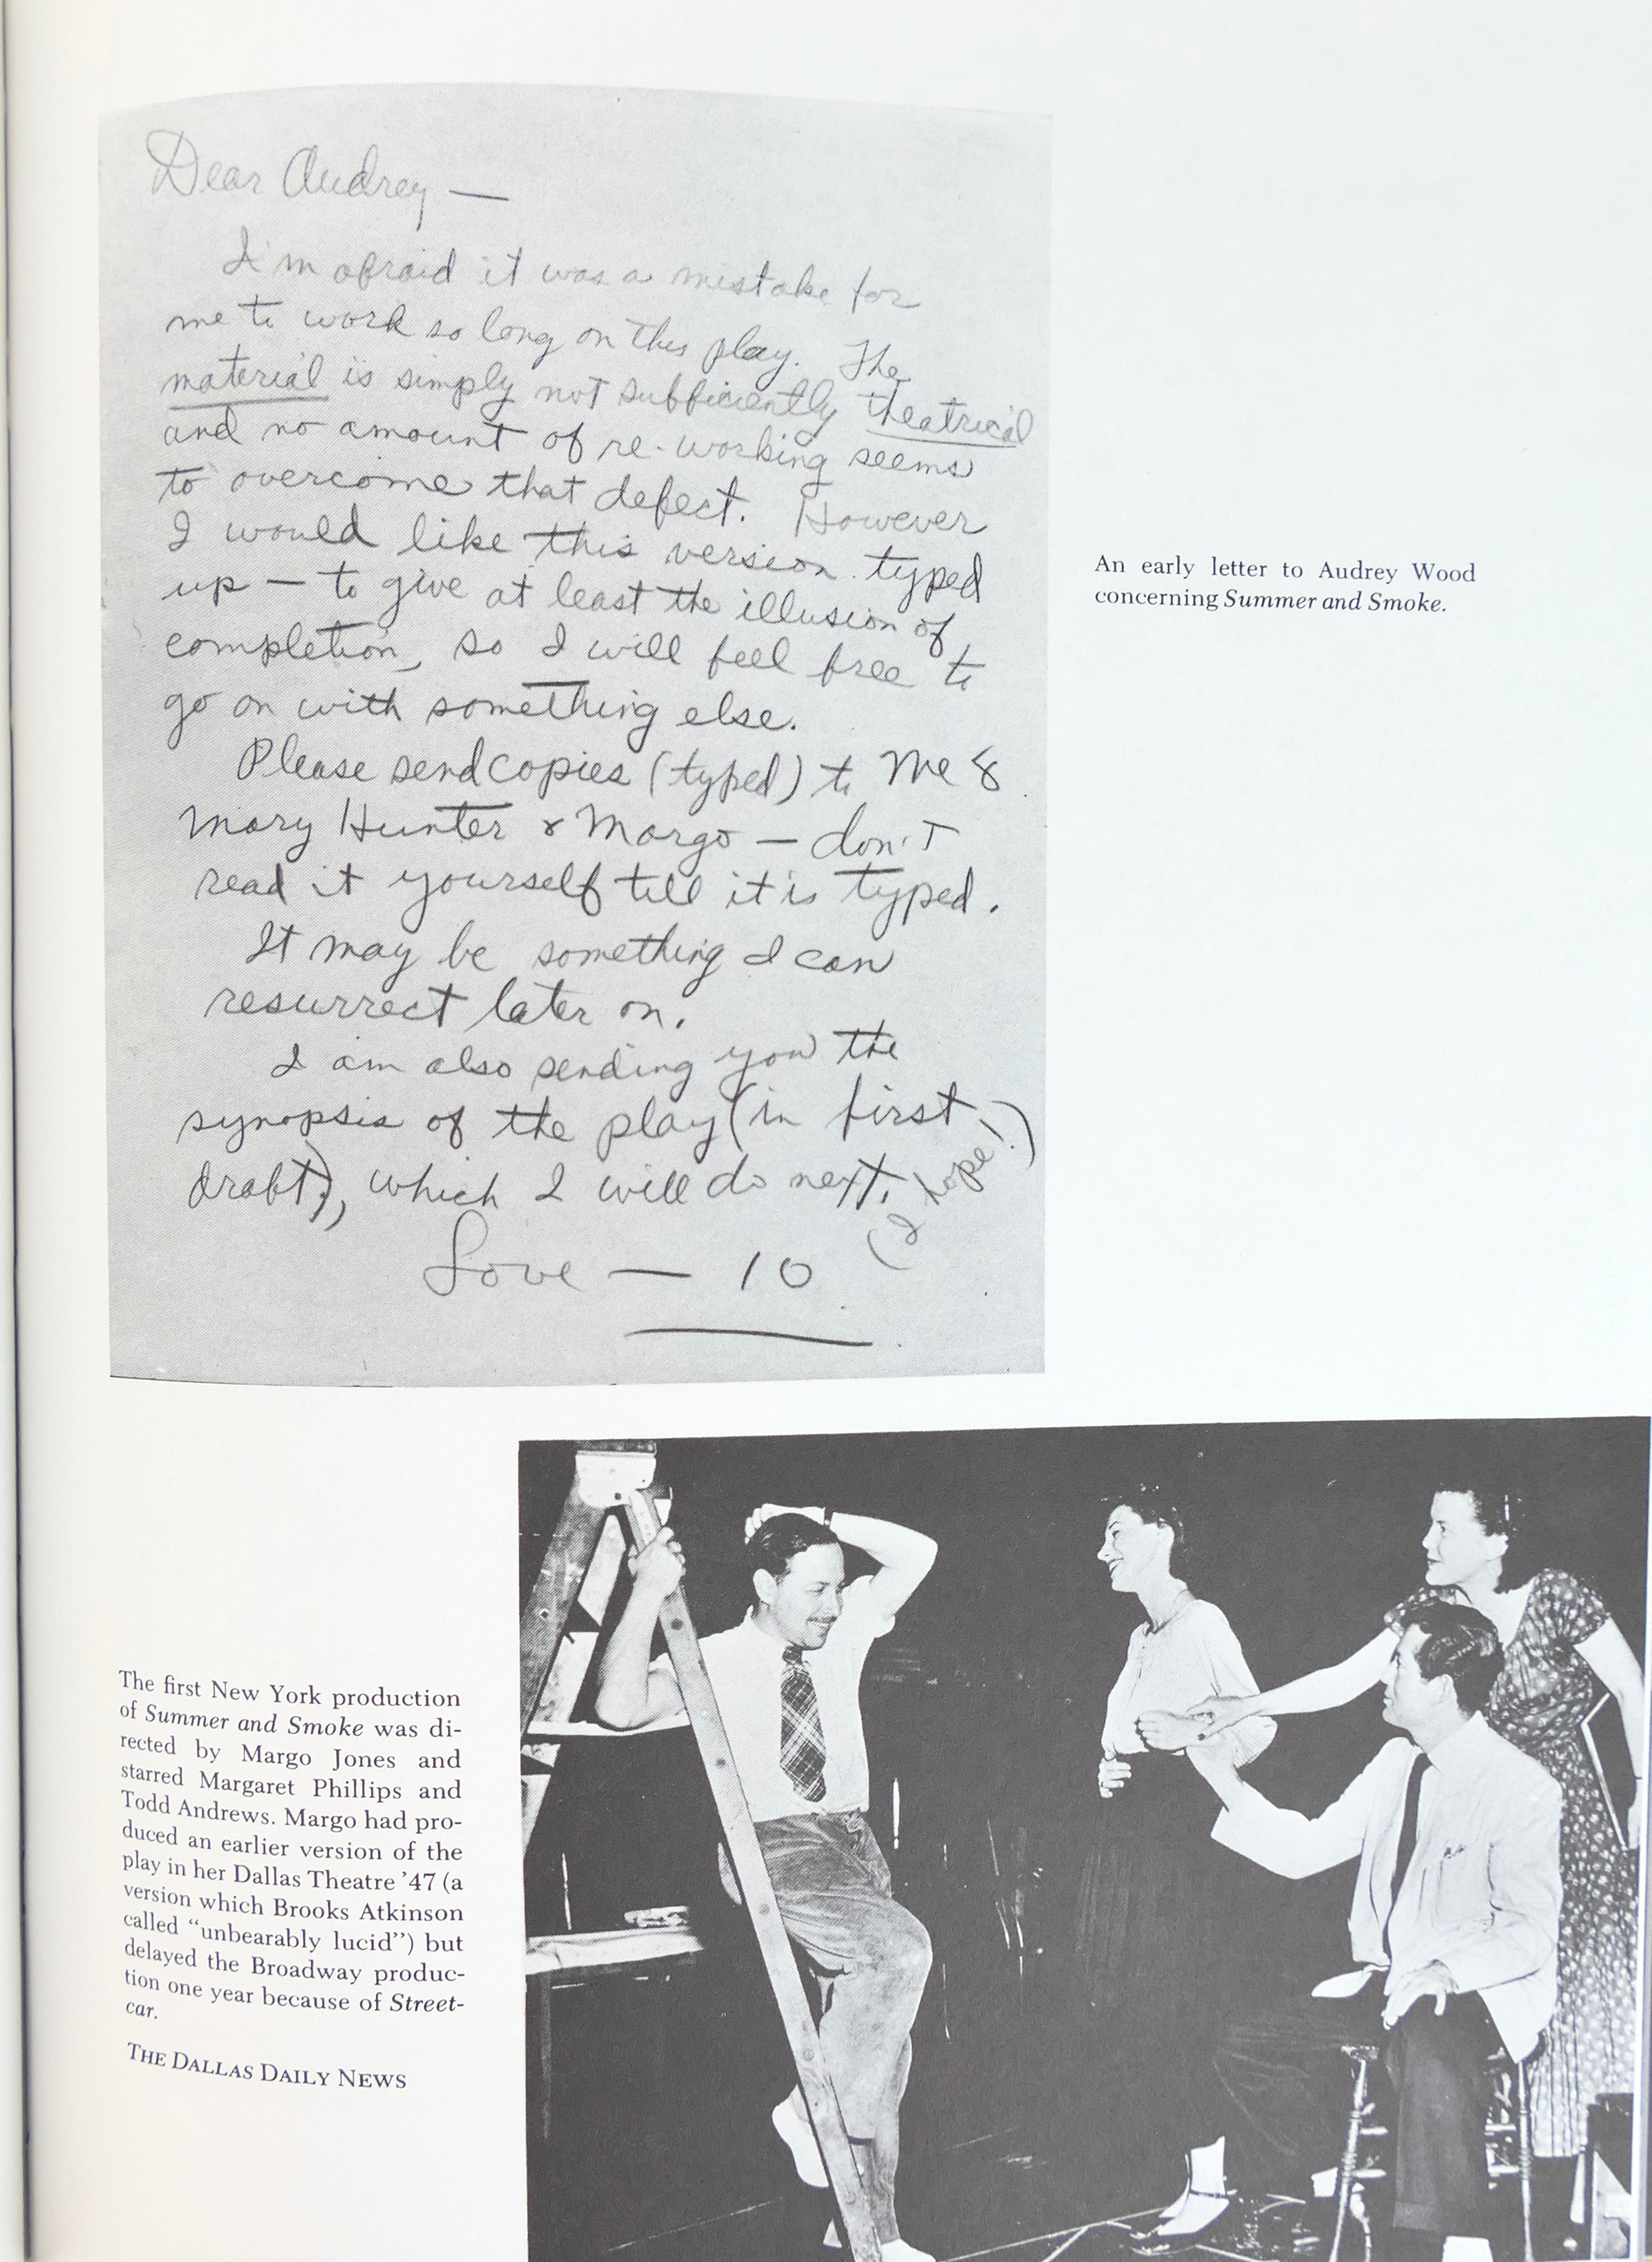 Dear Audrey —
I'm afraid it was a mistake for
me to work so long on this play. The
material is simply not sufficiently theatrical
and no amount of re-working seems
to overcome that defect. However
I would like this version typed
up — to give at least the illusion of
completion, so I will feel free to
go on with something else.
Please send copies (typed) to me &
Mary Hunter & Margo — don't
read it yourself till it is typed.
It may be something I can
resurrect later on.
I am also sending you the
synopsis of the play (in first
draft), which I will do next. (I hope!)
Love — 10
An early letter to Audrey Wood
concerning Summer and Smoke.
The first New York production
of Summer and Smoke was di-
rected by Margo Jones and
starred Margaret Phillips and
Todd Andrews. Margo had pro-
duced an earlier version of the
play in her Dallas Theatre '47 (a
version which Brooks Atkinson
called "unbearably lucid") but
delayed the Broadway produc-
tion one year because of Street-
car.
THE DALLAS DAILY NEWS